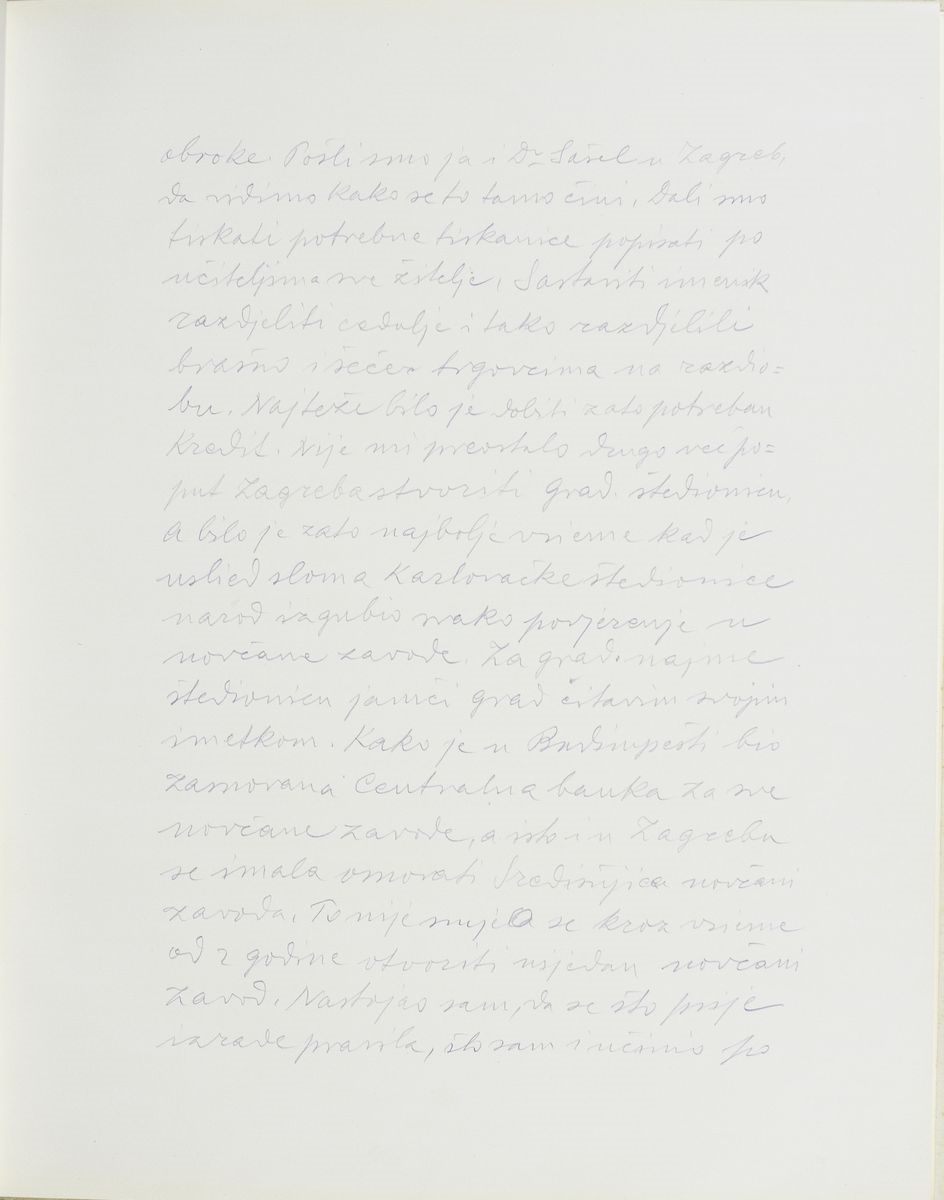 obroke. Pošli smo ja i Dr Šašel u Zagreb,
da vidimo kako se to tamo čini. Dali smo
tiskati potrebne tiskanice popisati po
učiteljima sve žitelje, Sastaviti imenik
razdjeliti cedulje i tako razdjelili
brašno i šećer trgovcima na razdio=
bu. Najteže bilo je dobiti zato potreban
Kredit. Nije mi preostalo drugo već po=
put Zagreba stvoriti grad. štedionicu,
a bilo je zato najbolje vrieme kad je
uslied sloma Karlovačke štedionice
narod izgubio svako povjerenje u
novčane zavode. Za grad. najme
štedionicu jamči grad čitavim svojim
imetkom. Kako je u Budimpešti bio
zasnovana Centralna banka za sve
novčane zavode, a isto i u Zagrebu
se imala osnovati Središnjica novčani
zavoda. To nije smjelo se kroz vrieme
od 2 godine otvoriti nijedan novčani
zavod. Nastojao sam, da se što prije
izrade pravila, što sam i učinio po